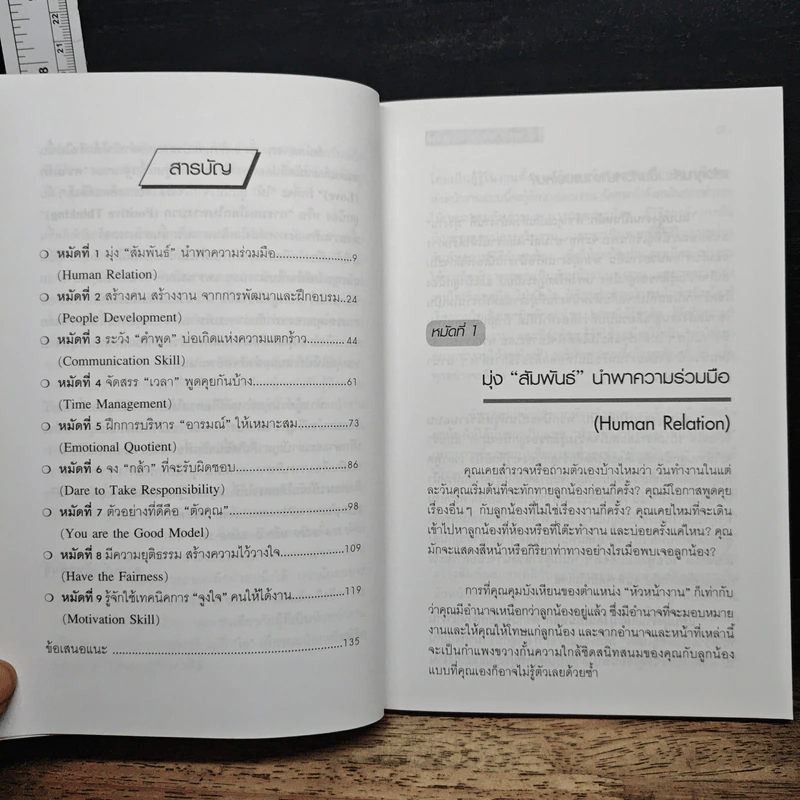 22
21
8
สารบัญ
❍ หมัดที่ 1 มุ่ง “สัมพันธ์” นำพาความร่วมมือ....................9
(Human Relation)
❍ หมัดที่ 2 สร้างคน สร้างงาน จากการพัฒนาและฝึกอบรม..24
(People Development)
❍ หมัดที่ 3 ระวัง “คำพูด” บ่อเกิดแห่งความแตกร้าว..........44
(Communication Skill)
❍ หมัดที่ 4 จัดสรร “เวลา” พูดคุยกันบ้าง.........................61
(Time Management)
❍ หมัดที่ 5 ฝึกการบริหาร “อารมณ์” ให้เหมาะสม.............73
(Emotional Quotient)
❍ หมัดที่ 6 จง “กล้า” ที่จะรับผิดชอบ.............................86
(Dare to Take Responsibility)
❍ หมัดที่ 7 ตัวอย่างที่ดีคือ “ตัวคุณ”..............................98
(You are the Good Model)
❍ หมัดที่ 8 มีความยุติธรรม สร้างความไว้วางใจ.................109
(Have the Fairness)
❍ หมัดที่ 9 รู้จักใช้เทคนิคการ “จูงใจ” คนให้ได้งาน.............119
(Motivation Skill)
ข้อเสนอแนะ ..........................................................135
หมัดที่ 1
มุ่ง “สัมพันธ์” นำพาความร่วมมือ
(Human Relation)
คุณเคยสำรวจหรือถามตัวเองบ้างไหมว่า วันทำงานในแต่
ละวันคุณเริ่มต้นที่จะทักทายลูกน้องก่อนกี่ครั้ง? คุณมีโอกาสพูดคุย
เรื่องอื่นๆ กับลูกน้องที่ไม่ใช่เรื่องงานกี่ครั้ง? คุณเคยไหมที่จะเดิน
เข้าไปหาลูกน้องที่ห้องหรือที่โต๊ะทำงาน และบ่อยครั้งแค่ไหน? คุณ
มักจะแสดงสีหน้าหรือกิริยาท่าทางอย่างไรเมื่อพบเจอลูกน้อง?
การที่คุณคุมบังเหียนของตำแหน่ง “หัวหน้างาน” ก็เท่ากับ
ว่าคุณมีอำนาจเหนือกว่าลูกน้องอยู่แล้ว ซึ่งมีอำนาจที่จะมอบหมาย
งานและให้คุณให้โทษแก่ลูกน้อง และจากอำนาจและหน้าที่เหล่านี้
จะเป็นกำแพงขวางกั้นความใกล้ชิดสนิทสนมของคุณกับลูกน้อง
แบบที่คุณเองก็อาจไม่รู้ตัวเลยด้วยซ้ำ